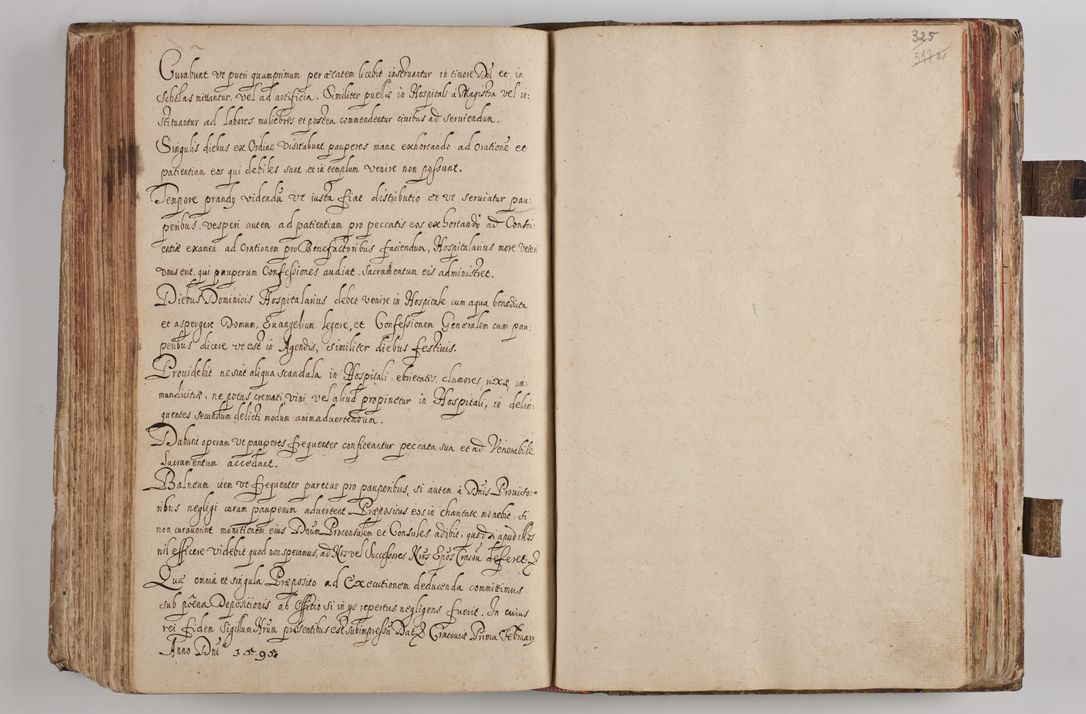 Curabunt vt pueri quamprimum per ætatem licebit instruantur in timore Dñi et in
scholas mittantur, vel ad artificia. Similiter puellæ in Hospitali a Magistra vel in:
stituantur ad labores muliebres et postea commendentur ciuibus ad seruiendum.
Singulis diebus ex Ordine visitabunt pauperes mane exhortando ad Orationē et
patientiam eos qui debiles sunt et in templum venire non possunt.
Tempore prandy videndū vt iusta fiat distributio et vt seruiatur pau:
peribus, vesperi autem ad patientiam pro peccatis eos exhortando ad Consci
entiæ examen ad Orationem pro Benefactoribus faciendam, Hospitalarius more veteri
vnus erit, qui pauperum Confessiones audiat, sacramentum eis administret.
Diebus Dominicis Hospitalarius debet venire in Hospitale cum aqua benedicta
et aspergere Domum, Euangelium legere, et Confessionem Generalem cum pau:
peribus dicere vt est in Agendis, similiter diebus festiuis.
Prouidebit ne sint aliqua scandala in Hospitali, ebrietatis, clamores, rixæ, im
mundicitiæ, ne potus cremati vini vel aliud propinetur in Hospitali, in delin:
quentes secundum delicti modum animaduertendum.
Dabunt operam vt pauperes frequenter confiteantur peccata sua et ad Venerabile
Sacramentum accedant.
Balneum item vt frequenter paretur pro pauperibus, si autem à Dñis Prouiso:
ribus negligi curam pauperum aduertent Præpositus eos in charitate monebit. Si
non curauerint monitionem eius Dnum Proconsulem et Consules adibit, quod si apud illos
nil efficere videbit quod non speramus, ad Nos vel Successores Nros Epos Cracou deferet.
Quæ omnia et singula Præposito ad Executionem deducenda committimus
sub pœna Depositionis ab Officio si in ys repertus negligens fuerit. In cuius
rei fidem Sigillum Nrum præsentibus est subimpressū Dat Cracouiæ Prima February
Anno Dñi
325